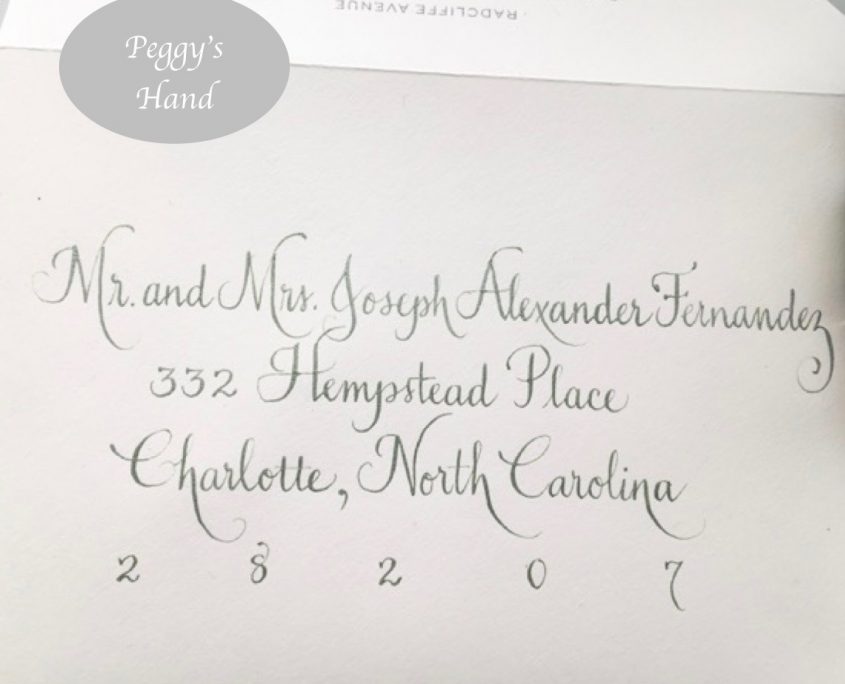 · RADCLIFFE AVENUE
Peggy's
Hand
Mr. and Mrs. Joseph Alexander Fernandez
332 Hempstead Place
Charlotte, North Carolina
2 8 2 0 7